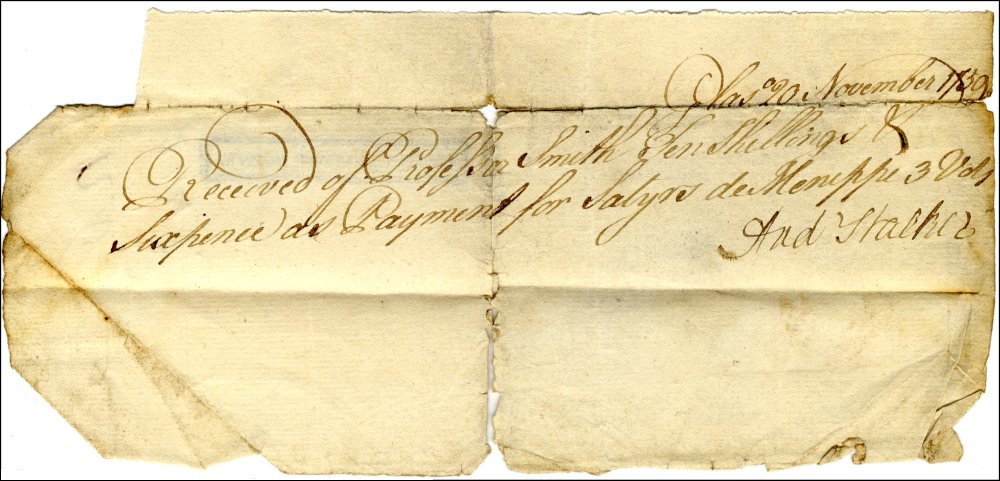 Glasgo 20 November 1759
Received of Professor Smith Ten Shillings &
Sixpence as Payment for Satyrs de Menippe 3 Vols
And Stalker